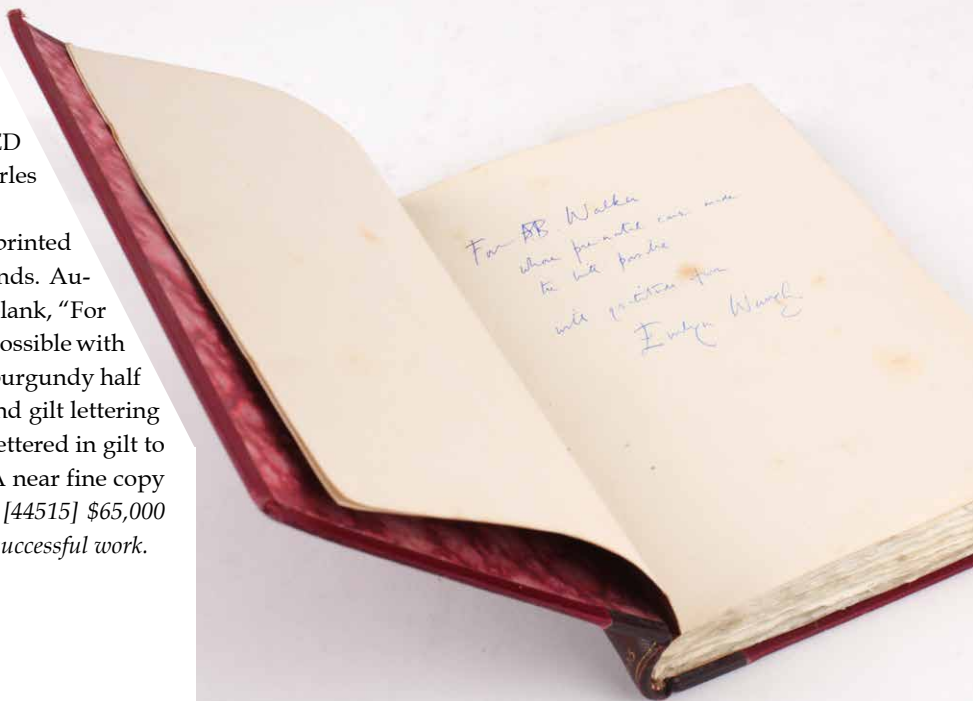 ED
rles
printed
nds. Au-
lank, “For
ossible with
urgundy half
nd gilt lettering
ettered in gilt to
A near fine copy
[44515] $65,000
uccessful work.
For BB. Walker
whose
with gratitude from
Evelyn Waugh